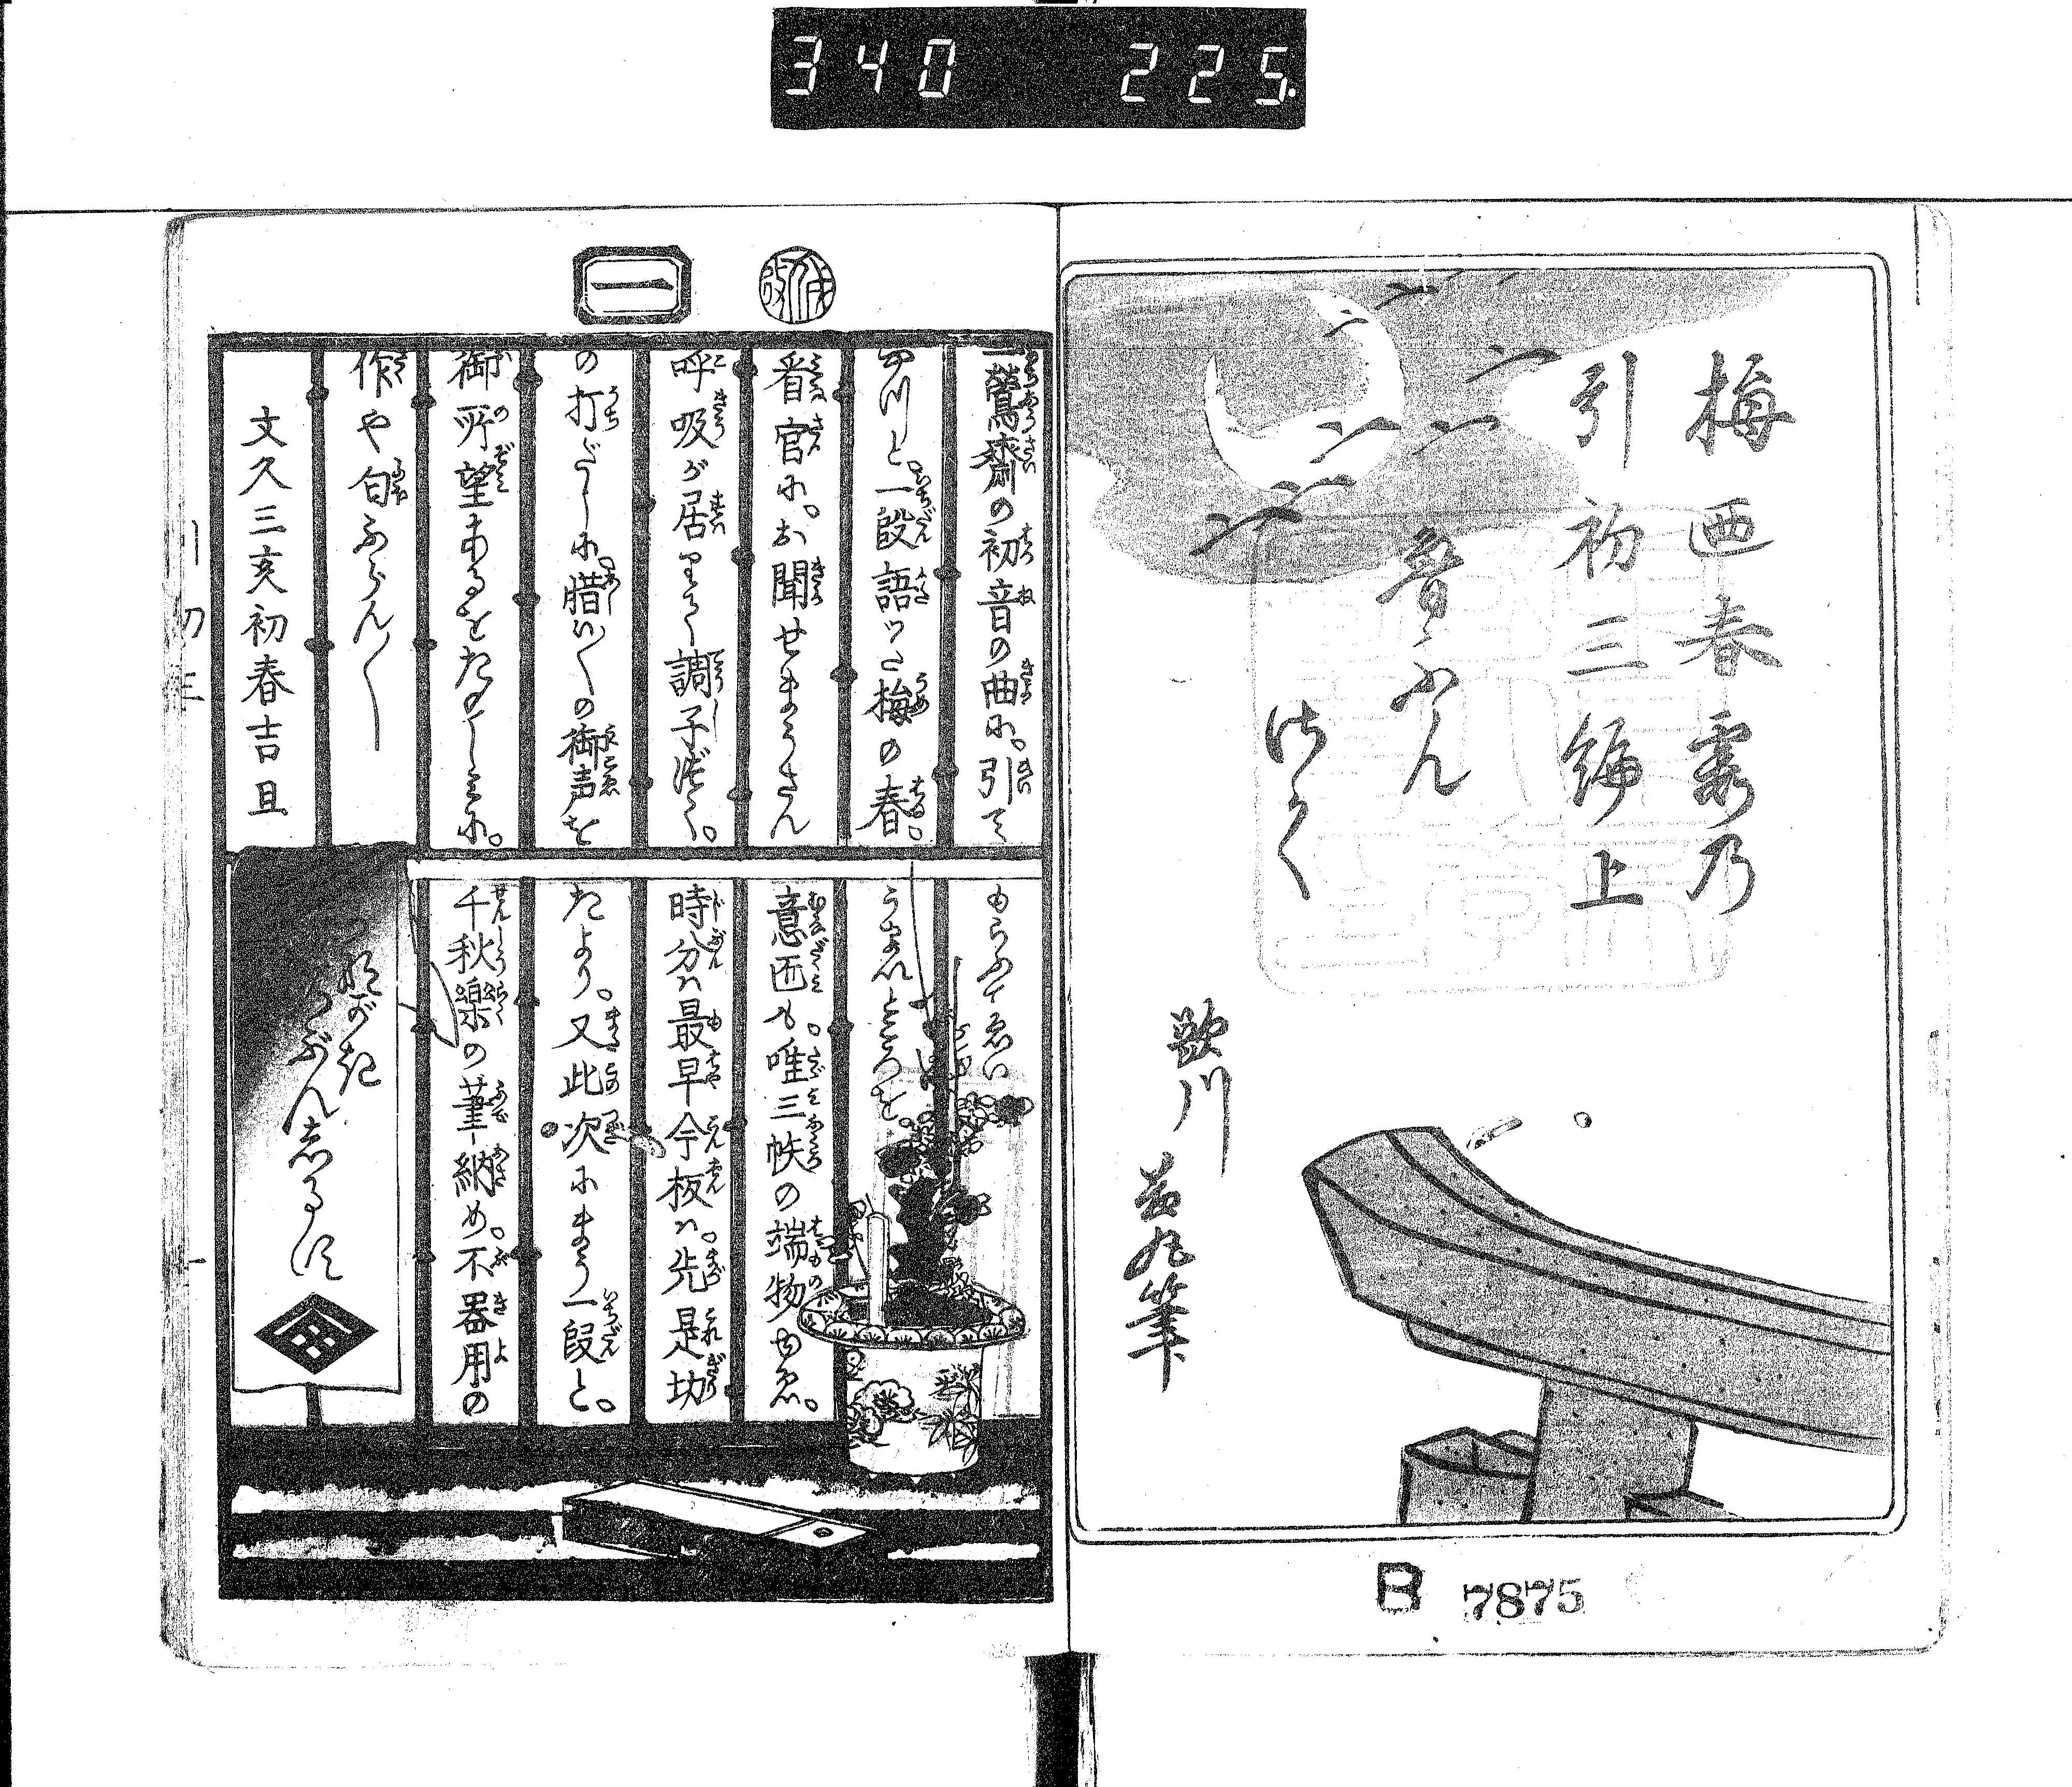 340 225
梅西春霧乃
引初三編上
魯ぶん
けさく
歌川
芳丸筆
B 7875
一
一鶯齋の初音の曲に。引て
もらふてゐい
四川と。一段語ツた梅の春。
うまいところを。
看官に。お聞せまうさん
意匠も。唯三帙の端物ゆゑ。
呼吸が居わるく調子づく。
時分は最早今板は。先是切
の打だしに。腊いくの御声を
たより。又此次にまう一段と。
御所望あるをたのしみに。
千秋楽の筆納め。不器用の
作や匂ふらん〳〵
文久三亥初春吉旦
かながき
ろぶんしるす